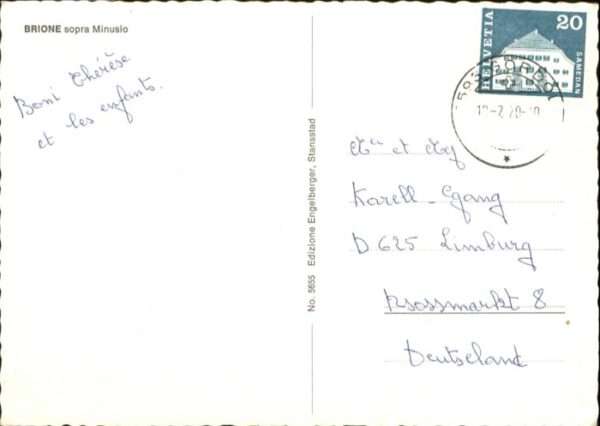 BRIONE sopra Minusio
Bomi Thérèse
et les enfants.
No. 5655 Edizione Engelberger, Stansstad
HELVETIA
20
SAMEDAN
GORDOLA
et
Karell-Egang
D 625 Limburg
Rossmarkt 8
Deutseland